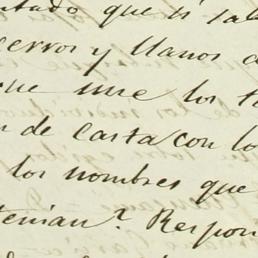 que si
cerros y llanos
que une los
de Casta con lo
los nombres que
tenian? Respon